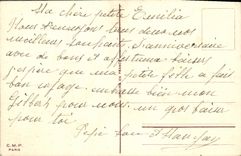 Ma chère petite Emilia
Nous t'envoyons tous deux nos
meilleurs souhaits d'anniversaire
avec de bons et affectueux baisers
j'espère que ma petite fille a fait
bon voyage. embrasse bien mon
pour nous. un gros baiser
pour toi.
C.M.P.
PARIS